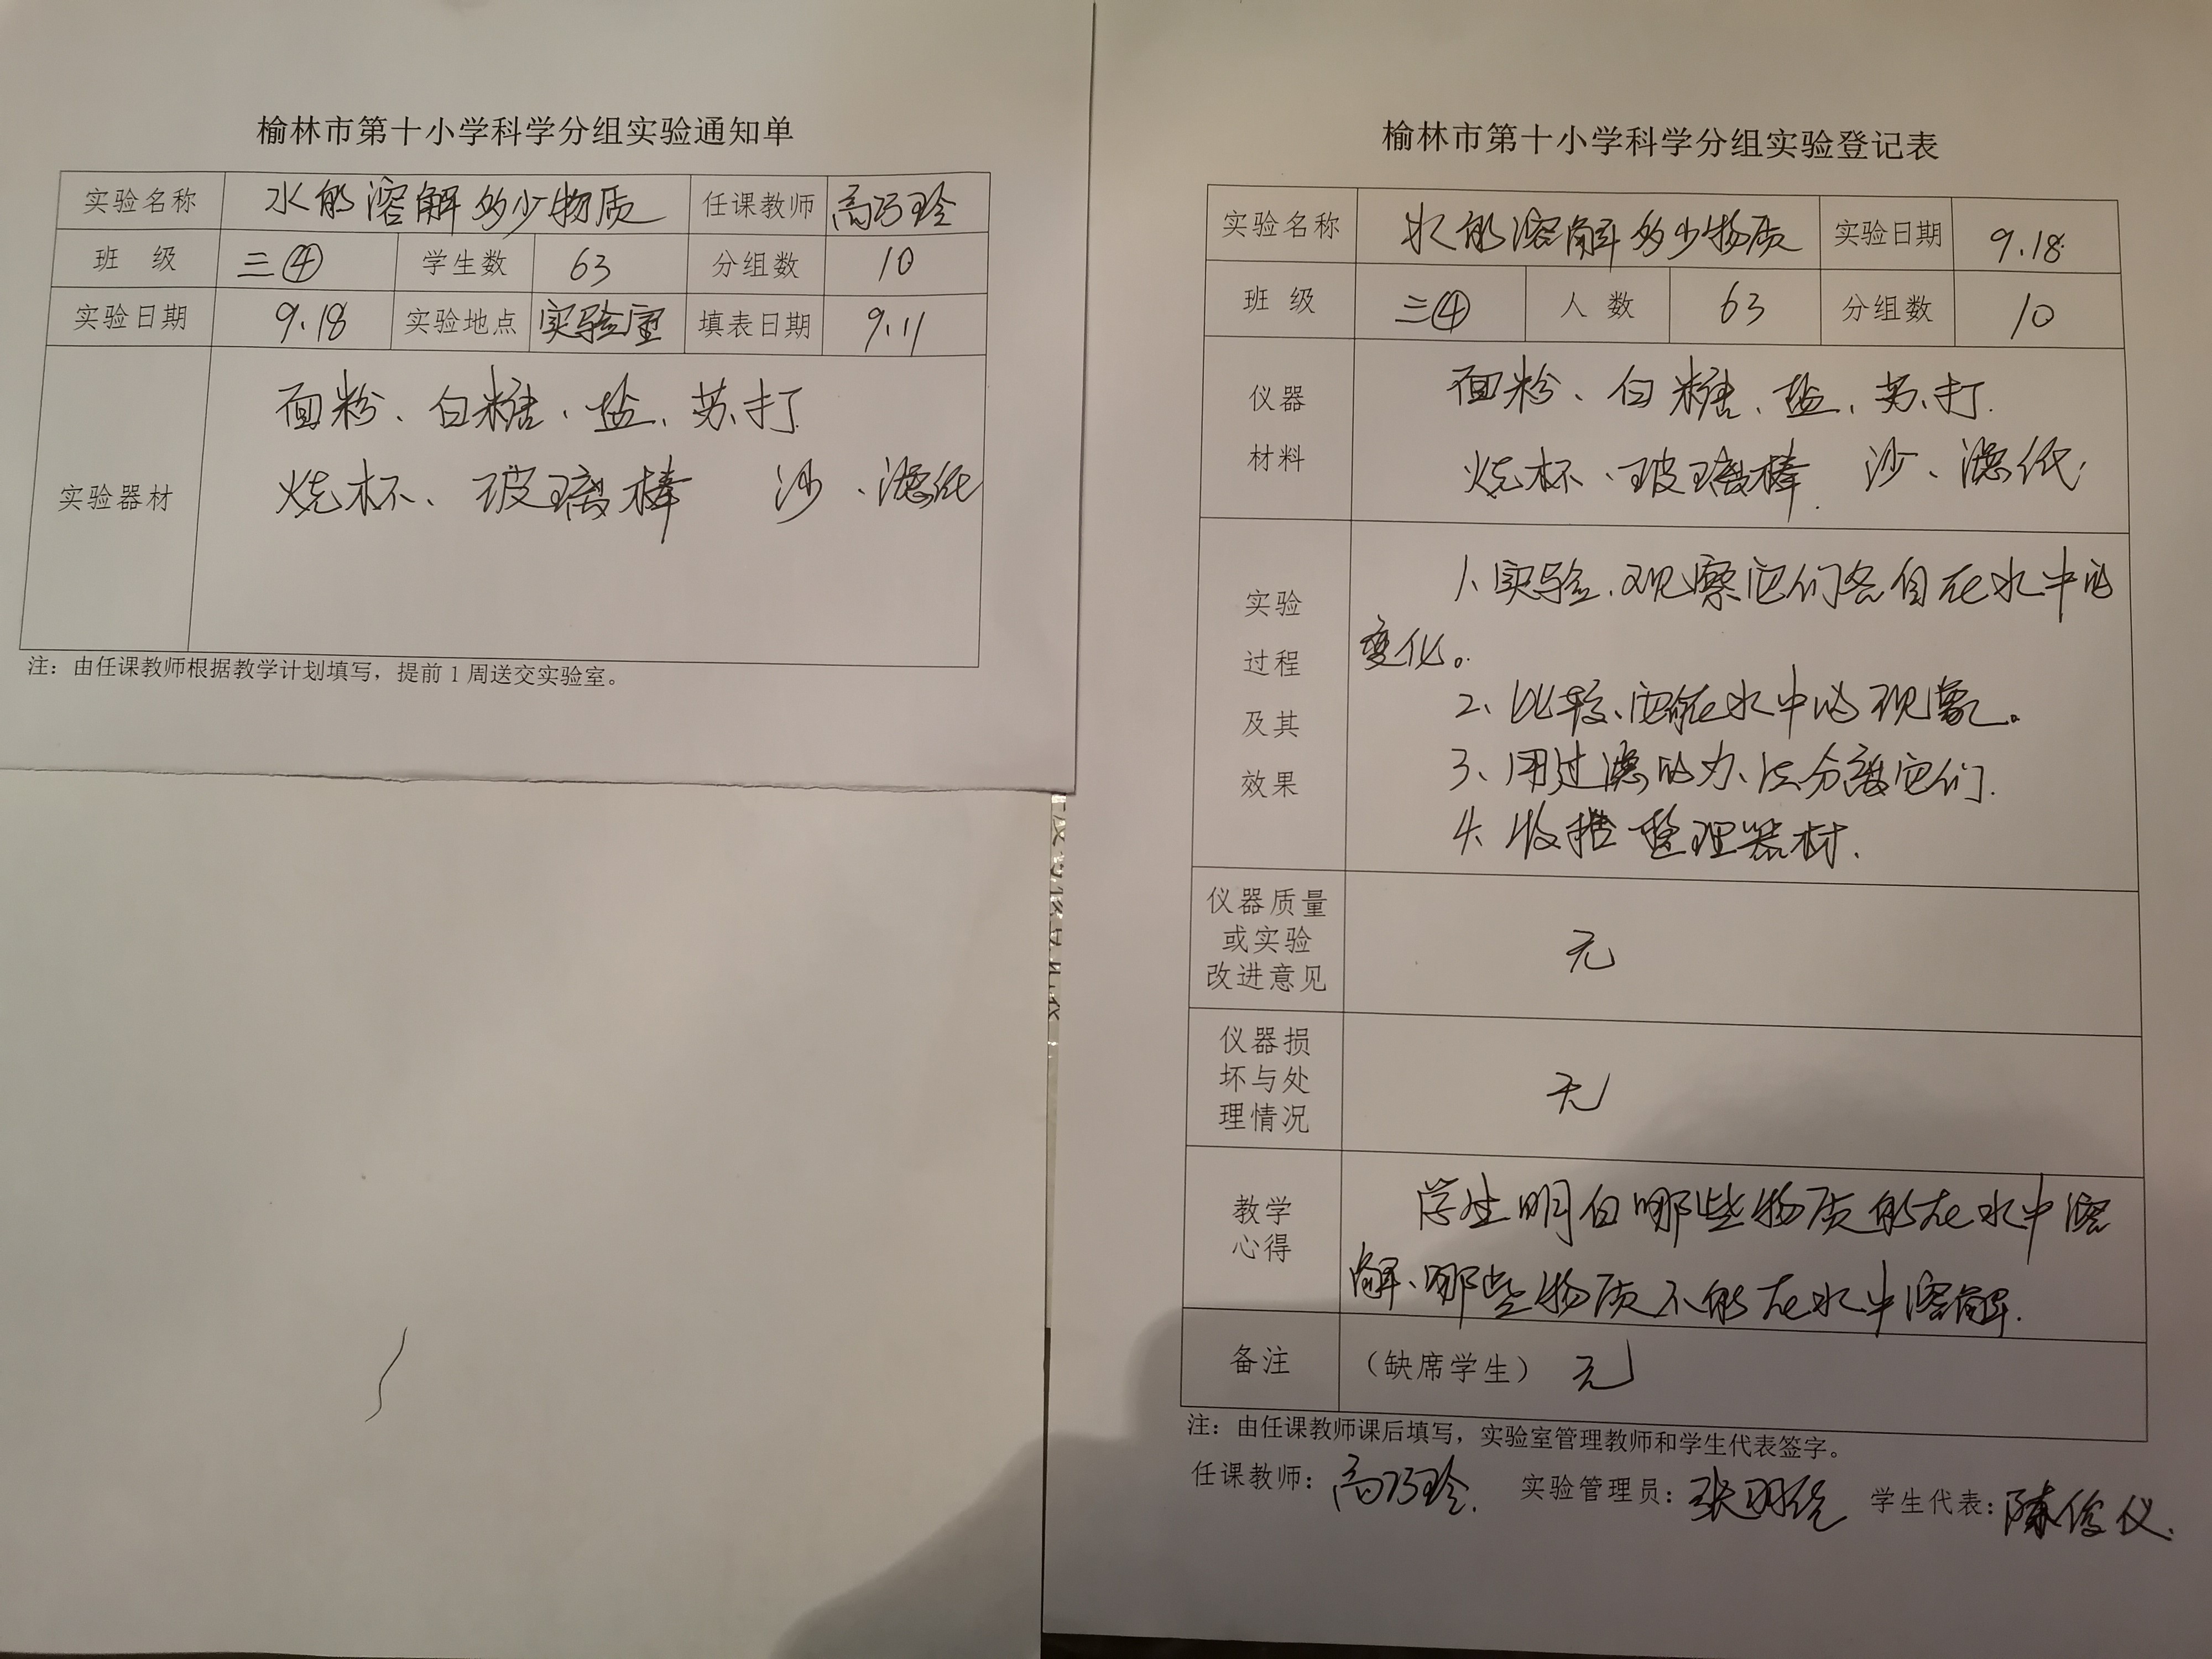 榆林市第十小学科学分组实验通知单
实验名称 水能溶解多少物质 任课教师 高巧玲
班 级 三④ 学生数 63 分组数 10
实验日期 9.18 实验地点 实验室 填表日期 9.11
实验器材
面粉、白糖、盐、苏打
烧杯、玻璃棒 沙、滤纸
注：由任课教师根据教学计划填写，提前1周送交实验室。
榆林市第十小学科学分组实验登记表
实验名称 水能溶解多少物质 实验日期 9.18
班 级 三④ 人 数 63 分组数 10
仪器
材料
面粉、白糖、盐、苏打.
烧杯、玻璃棒. 沙、滤纸.
实验
过程
及其
效果
1、实验.观察它们各自在水中的
变化。
2、比较、它们在水中的现象。
3、用过滤的办法分离它们.
4、收拾整理器材.
仪器质量
或实验
改进意见
无
仪器损
坏与处
理情况
无
教学
心得
学生明白哪些物质能在水中溶
解、哪些物质不能在水中溶解.
备注 （缺席学生） 无
注：由任课教师课后填写，实验室管理教师和学生代表签字。
任课教师：高巧玲. 实验管理员：张 学生代表：陈俊仪.